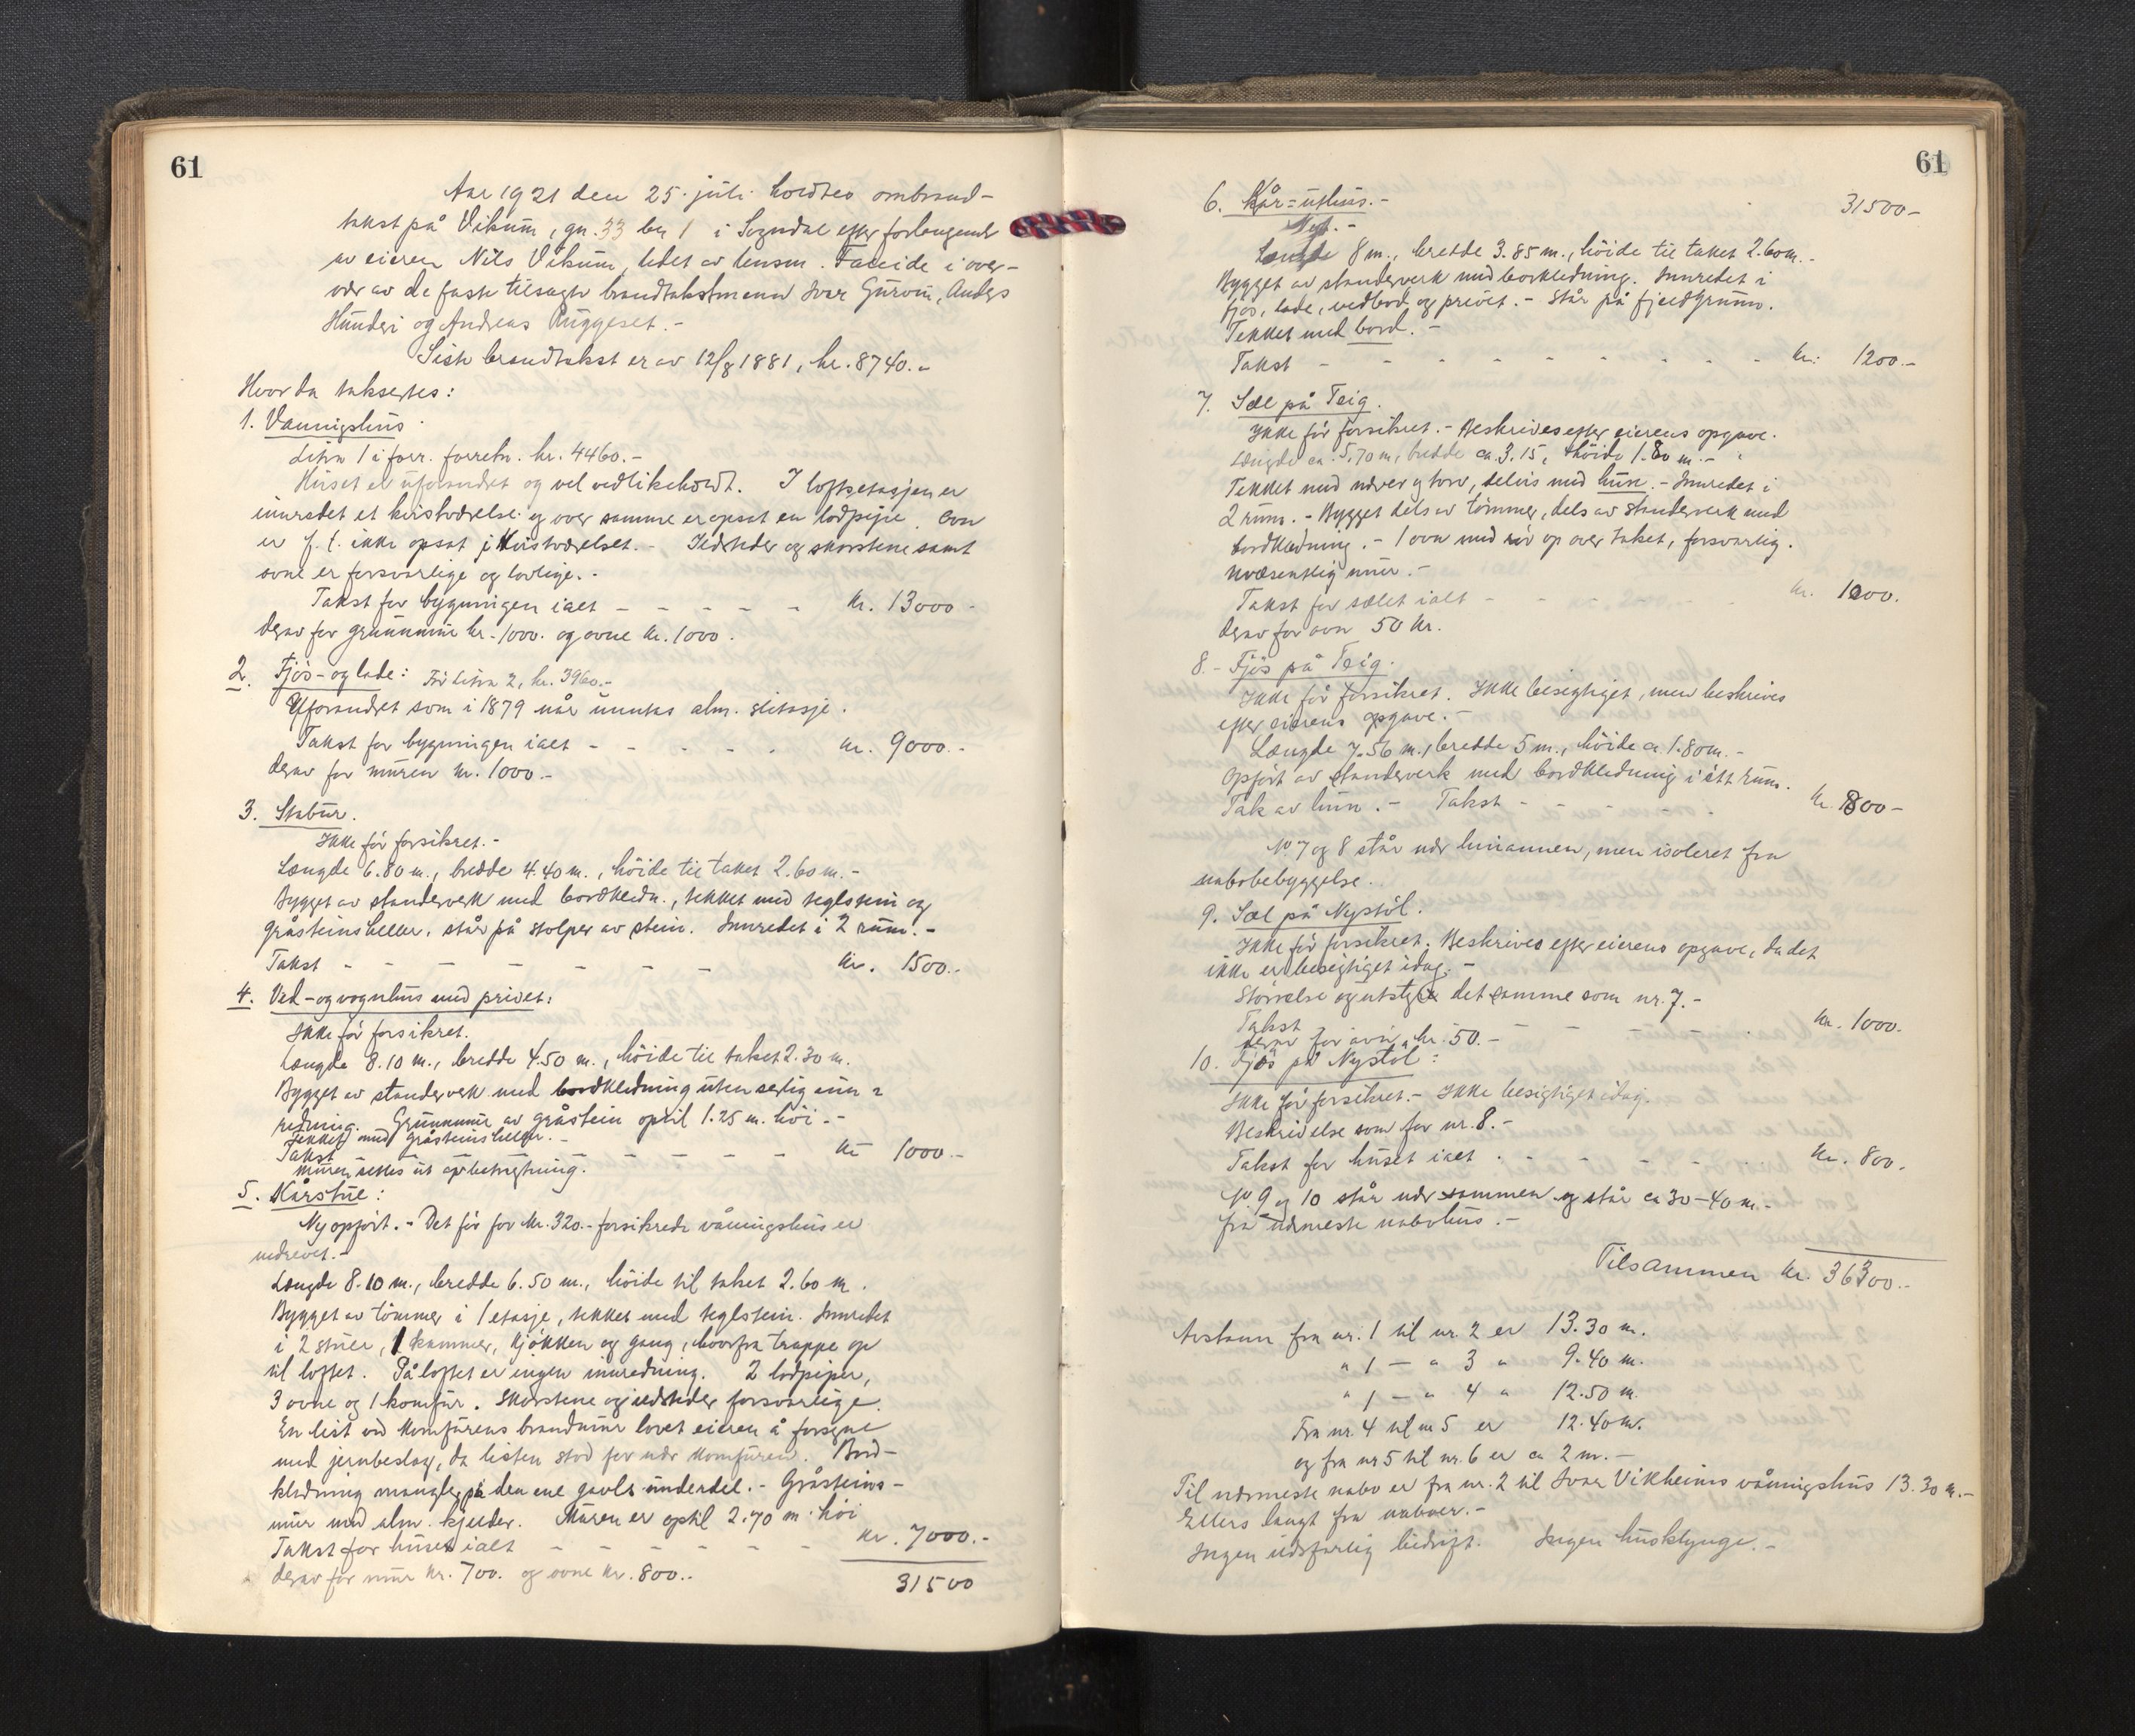 61
Aar 1921 den 25. juli holdtes ombrand-
takst på Vikum, gn. 33 bn 1 i Sogndal efter forlangende
av eieren Nils Vikum, ledet av lensm. Faleide i over-
vær av de faste tilsagte brandtakstmenn Ivar Gurvin, Anders
Hundere og Andreas Ruggeset.-
Siste brandtakst er av 12/8 1881, kr. 8740.-
Hvor da takseres:
1. Vaaningshus.
Litra 1 i forr. forretn. kr. 4460.-
Huset er uforandret og vel vedlikeholdt. I loftsetasjen er
innredet et kvistværelse og over samme er opsat en lodpipe. Ovn
er f. t. ikke opsat i kvistværelset.- Ildsteder og skorstene samt
ovne er forsvarlige og lovlige.-
Takst for bygningen ialt - - - - - kr. 13000-
derav for grunnmur kr. 1000. og ovne kr. 1000.
2. Fjøs- og lade: Før Litra 2, kr. 3960.-
Uforandret som i 1879 når unntas alm. slitasje.
Takst for bygningen ialt - - - - - kr. 9000.-
derav for muren kr. 1000.-
3. Stabur.
Ikke før forsikret.-
Længde 6.80 m., bredde 4.40 m., høide til taket 2.60 m.-
Bygget av standerverk med bordkledn., tekket med teglstein og
gråsteinsheller, står på stolper av stein. Innredet i 2 rum.-
Takst - - - - - - - kr. 1500.-
4. Ved- og vognhus med privet:
Ikke før forsikret.
Længde 8.10 m., bredde 4.50 m., høide til taket 2.30 m.
Bygget av standerverk med bordkledning uten særlig inn=
redning. Grunnmur av gråstein optil 1.25 m. høi.-
Tekket med gråsteinsheller.-
Takst - - - - - - kr 1000.-
muren settes ut av betragtning.
5. Kårstue:
Ny opført.- Det før for kr. 320.- forsikrede våningshus er
nedrevet.-
Længde 8.10 m., bredde 6.50 m., høide til taket 2.60 m.
Bygget av tømmer i 1 etasje, tekket med teglstein. Innredet
i 2 stuer, 1 kammer, kjøkken og gang, hvorfra trappe op
til loftet. På loftet er ingen innredning. 2 lodpiper,
3 ovne og 1 komfur. Skorstene og ildsteder forsvarlige.
En list ved komfurens brandmur lovet eieren å forsyne
med jernbeslag, da listen stod for nær komfuren. Bord-
kledning mangler på den ene gavls underdel.- Gråsteins-
mur med alm. kjelder. Muren er optil 2.70 m. høi
Takst for huset ialt - - - - - - kr. 7000.-
derav for mur kr. 700. og ovne kr. 800.-
31500
61
6. Kår=uthus.-
31500-
Nyt.-
Længde 8 m., bredde 3.85 m., høide til taket 2.60 m.-
Bygget av standerverk med bordkledning. Innredet i
fjøs, lade, vedbod og privet.- Står på fjeldgrunn.
Tekket med bord.-
Takst - - - - - - - - kr: 1200.-
7. Sæl på Teig.
Ikke før forsikret.- Beskrives efter eierens opgave.
Længde ca. 5.70 m, bredde ca. 3.15, høide 1.80 m.-
Tekket med næver og torv, delvis med hun.- Innredet i
2 rum.- Bygget dels av tømmer, dels av standerverk med
bordkledning.- 1 ovn med rør op over taket, forsvarlig.
Uvæsentlig mur.-
Takst for sælet ialt - - - - - kr. 1000.
derav for ovn 50 kr.
8.- Fjøs på Teig.
Ikke før forsikret. Ikke besigtiget, men beskrives
efter eierens opgave.-
Længde 7.56 m., bredde 5 m., høide ca 1.80 m.-
Opført av standerverk med bordkledning i ett rum.
Tak av hun.- Takst - - - - kr. 800-
Nr. 7 og 8 står nær hinannen, men isoleret fra
nabobebyggelse.
9. Sæl på Nystøl.
Ikke før forsikret. Beskrives efter eierens opgave, da det
ikke er besigtiget idag.-
Størrelse og utstyr det samme som nr. 7.-
Takst - - - - - kr. 1000.
derav for ovn kr. 50.-
10. Fjøs på Nystøl:
Ikke før forsikret.- Ikke besigtiget idag.
Beskrivelse som for nr. 8.-
Takst for huset ialt - - - - - kr. 800.
Nr. 9 og 10 står nær sammen og står ca 30-40 m.-
fra nærmeste nabohus.-
Tilsammen kr. 36300.-
Avstann fra nr. 1 til nr. 2 er 13.30 m.
" 1 - " 3 " 9.40 m.
" 1 - " 4 " 12.50 m.
Fra nr. 4 til nr 5 er 12.40 m.
og fra nr 5 til nr. 6 er ca 2 m.-
Til nærmeste nabo er fra nr. 2 til Ivar Vikheims våningshus 13.30 m.-
Ellers langt fra naboer.-
Ingen ildsfarlig bedrift. Ingen husklynge.-